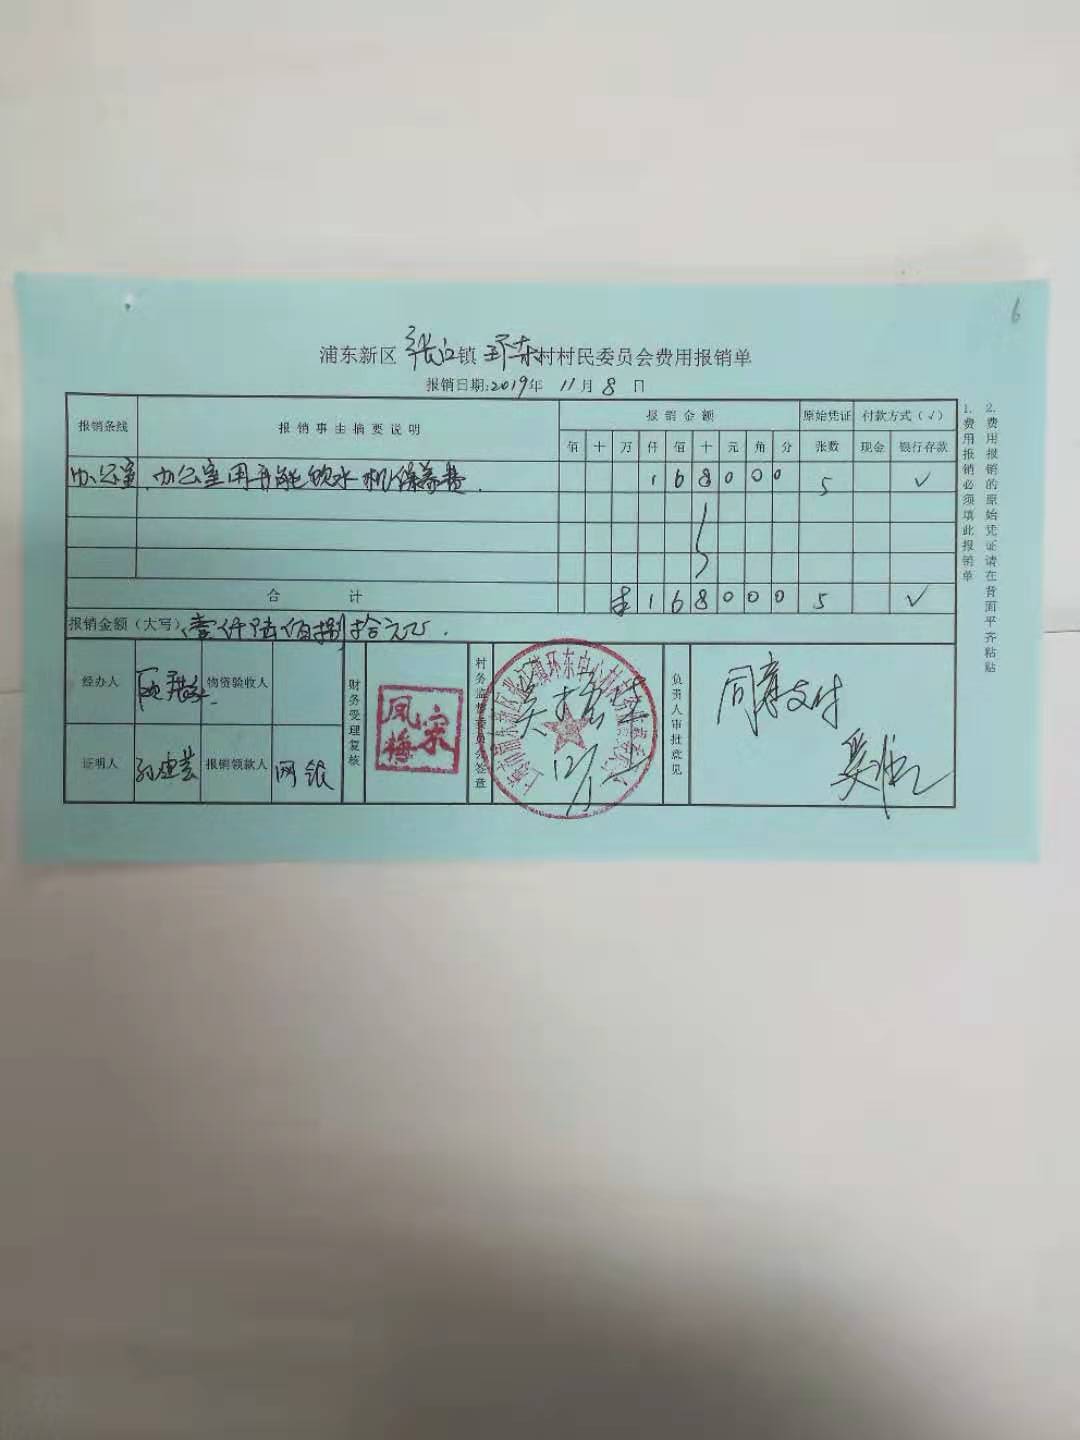 6
浦东新区 张江 镇 环东 村村民委员会费用报销单
报销日期:2019年 11月 8 日
报销条线 报销事由摘要说明 报销金额 原始凭证张数 付款方式(√)
佰 十 万 仟 佰 十 元 角 分 现金 银行存款
办公室 办公室用 饮水机保养费. 1 6 8 0 0 0 5 √
合计 1 6 8 0 0 0 5 √
报销金额(大写) 壹仟陆佰捌拾元正.
经办人 物资验收人
证明人 报销领款人 网银
财务受理复核 宋凤梅
村务监督委员会签章 12/
负责人审批意见 同意支付
1.费用报销必须填此报销单
2.费用报销的原始凭证请在背面平齐粘贴